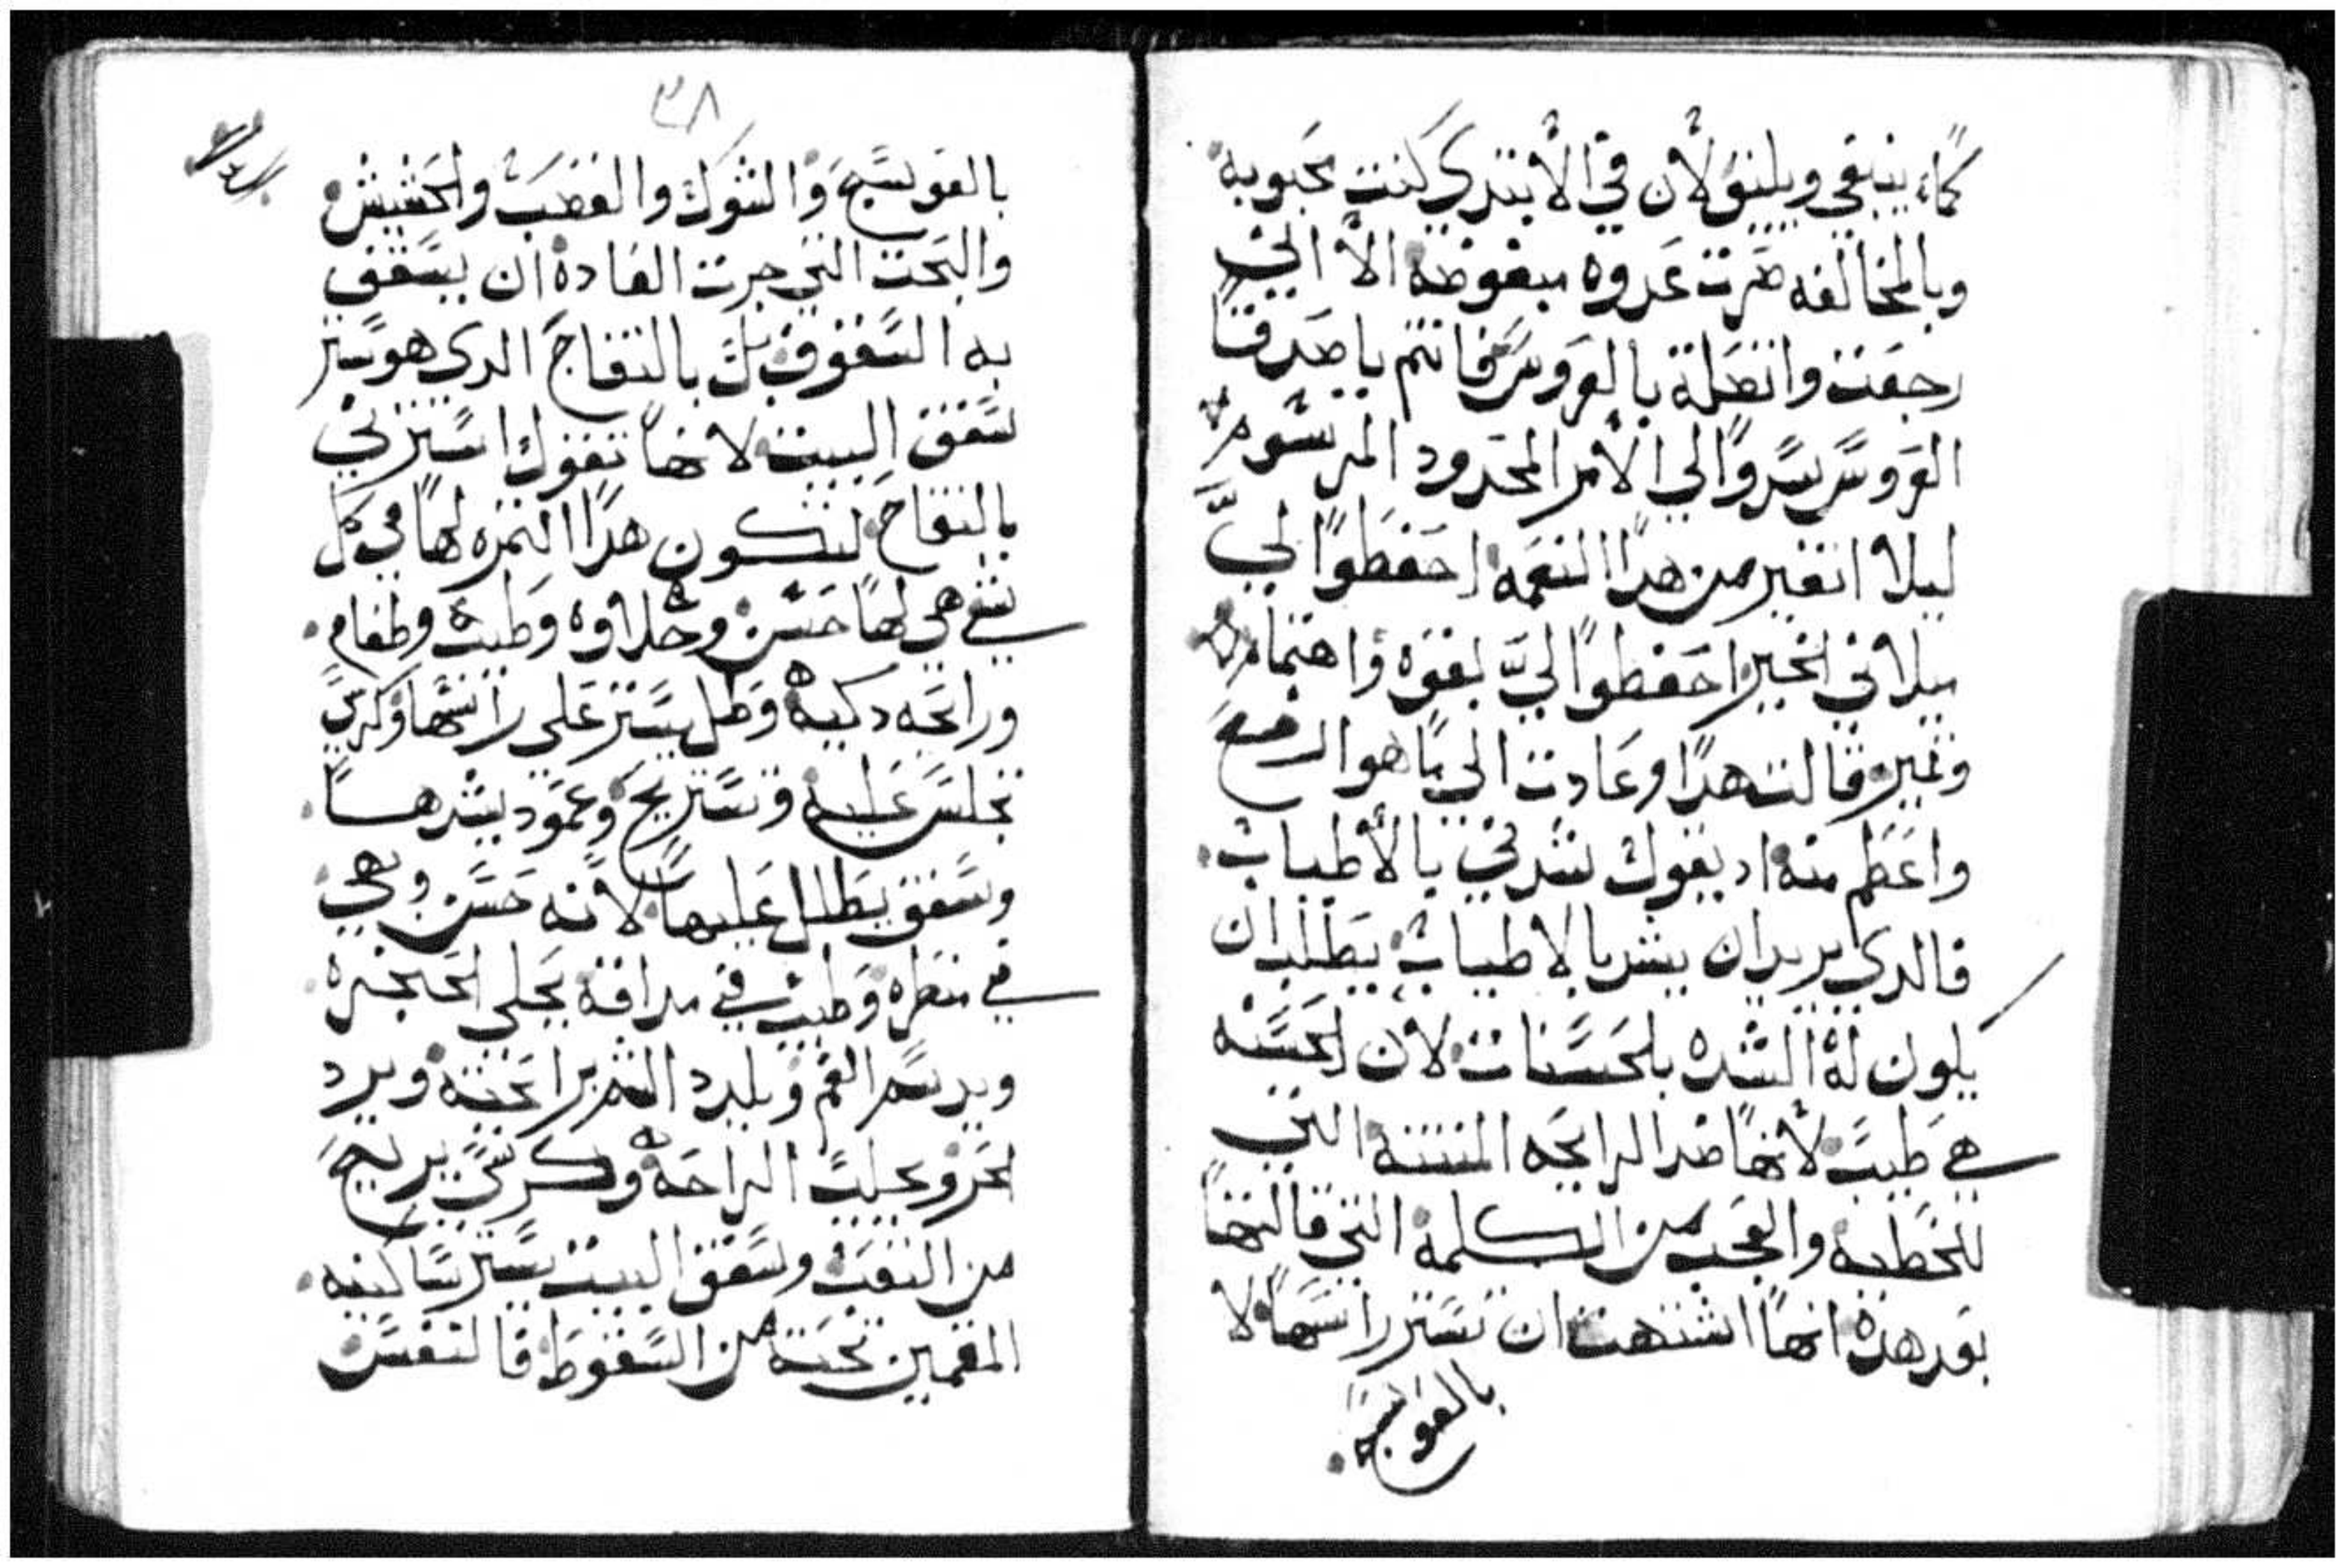 كماء ينبغي ويليق لان في الابتدي كنت محبوبه
وبالمخالفه صرت عدوه مبغوضه الا اني
رجعت واتصلة بالعروس فانتم يا صدقا
العروس سيروا الي الامر المحدود المرسوم
ليلا اتغير من هدا النعمه احفظوا لي
ميلاني الخير احفظوا لي بقوه واهتمام
وتميز قالت هدا وعادت الي ما هو ارفع
واعظم منه اد يقول شدني بالاطياب
فالدي يريد ان يشد بالاطياب يطلب ان
يكون له الشده بلحسنات لان الحسنه
هي طيب لانها ضد الرايحه المنتنة التي
للخطيه والعجب من الكلمة التي قالتها
بعد هذه انها اشتهت ان تستر راسها لا
بالعوسج
٣٨
بالعوسج والشوك والقصب والحشيش
والبحت التي جرت العاده ان يسقف
به السقوف بل بالتفاح الدي هو ستر
سقف البيت لانها تقول استرني
بالتفاح لتكون هدا الثمره لها في كل
شي هي لها حسن وحلاوه وطيب وطعام
ورايحه دكيه وظل يستر علي راسها وكرسي
تجلس عليه وتستريح وعمود يشدها
وسقف يظلل عليها لانه حسن وبهي
في منظره وطيب في مداقة يحلي الحنجره
ويدسم الفم ويلدد الشم برايحته ويبرد
الحر ويجلب الراحه وكرسي يريح
من التعب وسقف البيت يستر ساكنيه
المقيمين تحته من السقوط فالنفس